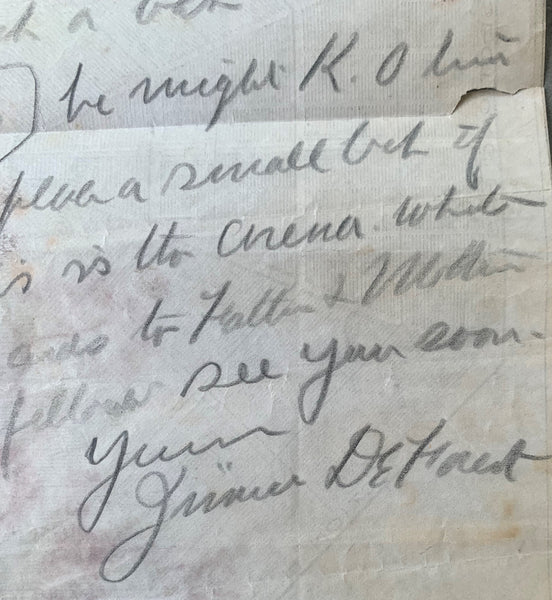 a bet
he might K.O him
place a small bet if
is is the arena. while
ards to Father & Mother
fellows see you soon-
Yours
Jimmie DeForest